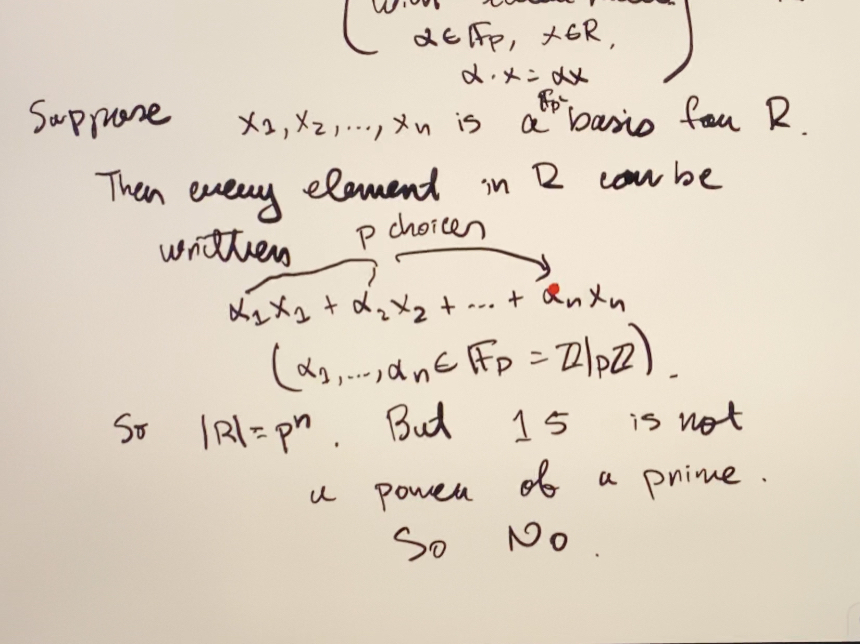 α ∈ 𝔽p, x∈R,
α · x = αx
Suppose x1, x2, ..., xn is a 𝔽p- basis for R.
Then every element in R can be
written p choices
α1x1 + α2x2 + ... + αnxn
(α1, ..., αn ∈ 𝔽p = ℤ/pℤ).
So |R| = pⁿ. But 15 is not
a power of a prime.
So No.